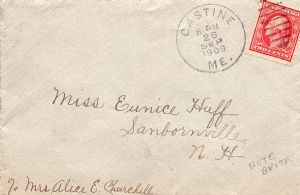 CASTINE
6 PM
26
SEP
1909
ME.
Miss Eunice Huff
Sanbornville
N H
NOTE
% Mrs Alice E. Churchill